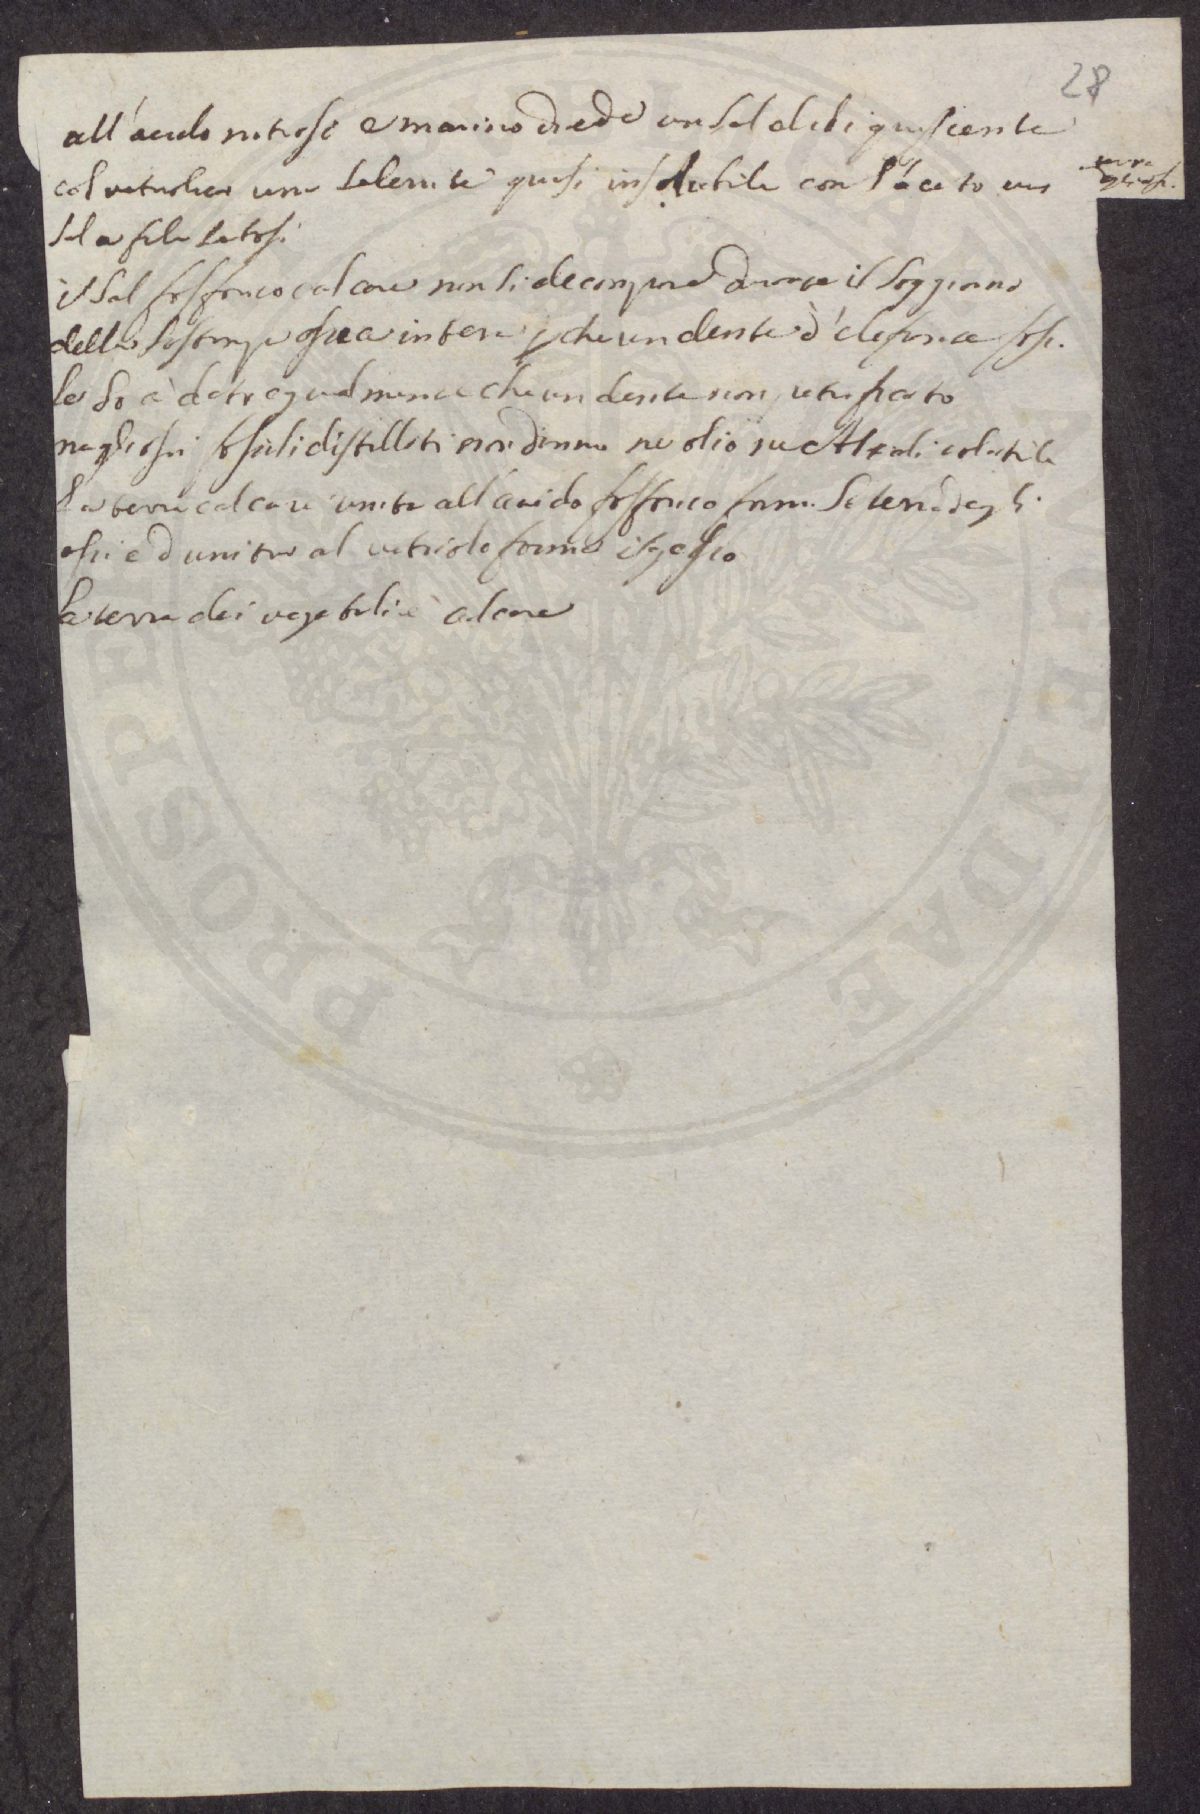 28
all'acido nitroso e marino diede un sal deliquescente
col vetriolico una selenite quasi insolubile con l'aceto un
sal a fila setosi
il sal fosforico calcare non si decompone durante il soggiorno
della sostanza ossea interra che un dente d'elefante fossi.
le da
che un dente non petrificato
negli ossi fossili distillati non danno ne olio ne Alcali volatile
La terra calcare unita all'acido fosforico forma la terra degli
ossi ed unita al vetriolo forma il gesso
la terra dei vegetali è calcare
terra
PROSPI
ENDAE